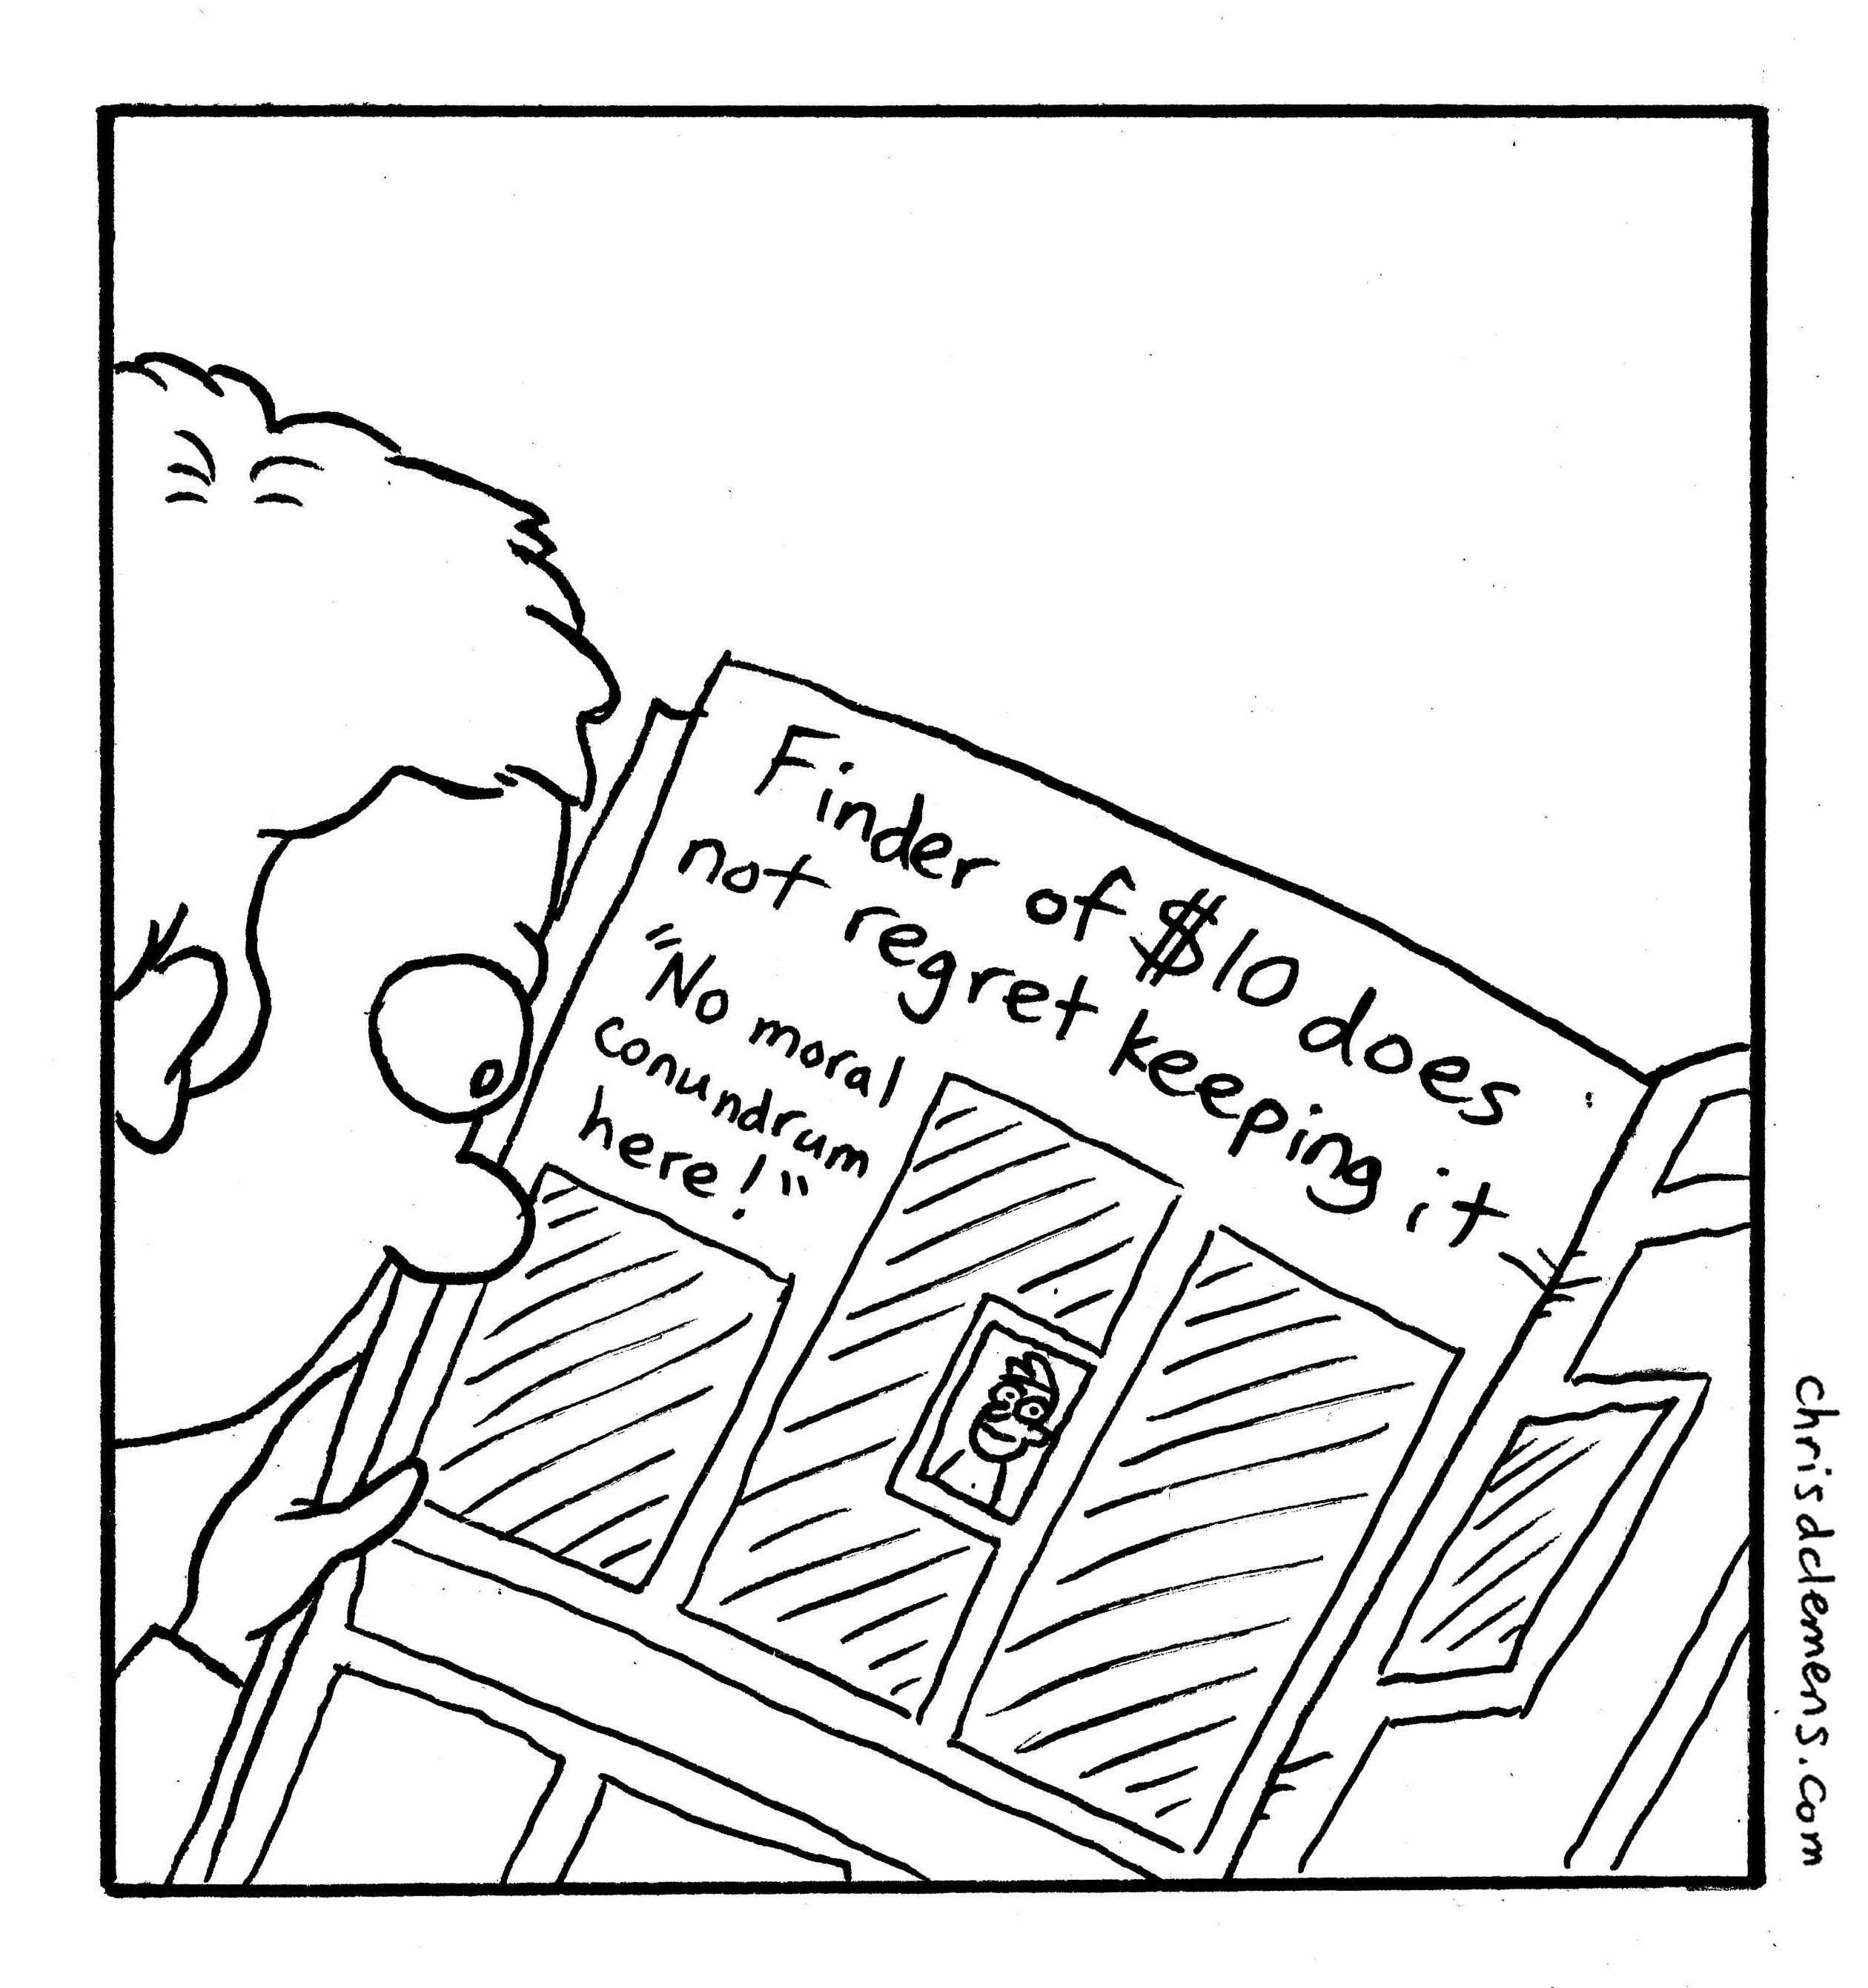 Finder of $10 does
not regret keeping it
"No moral
conundrum
here!"
chrisdclemens.com